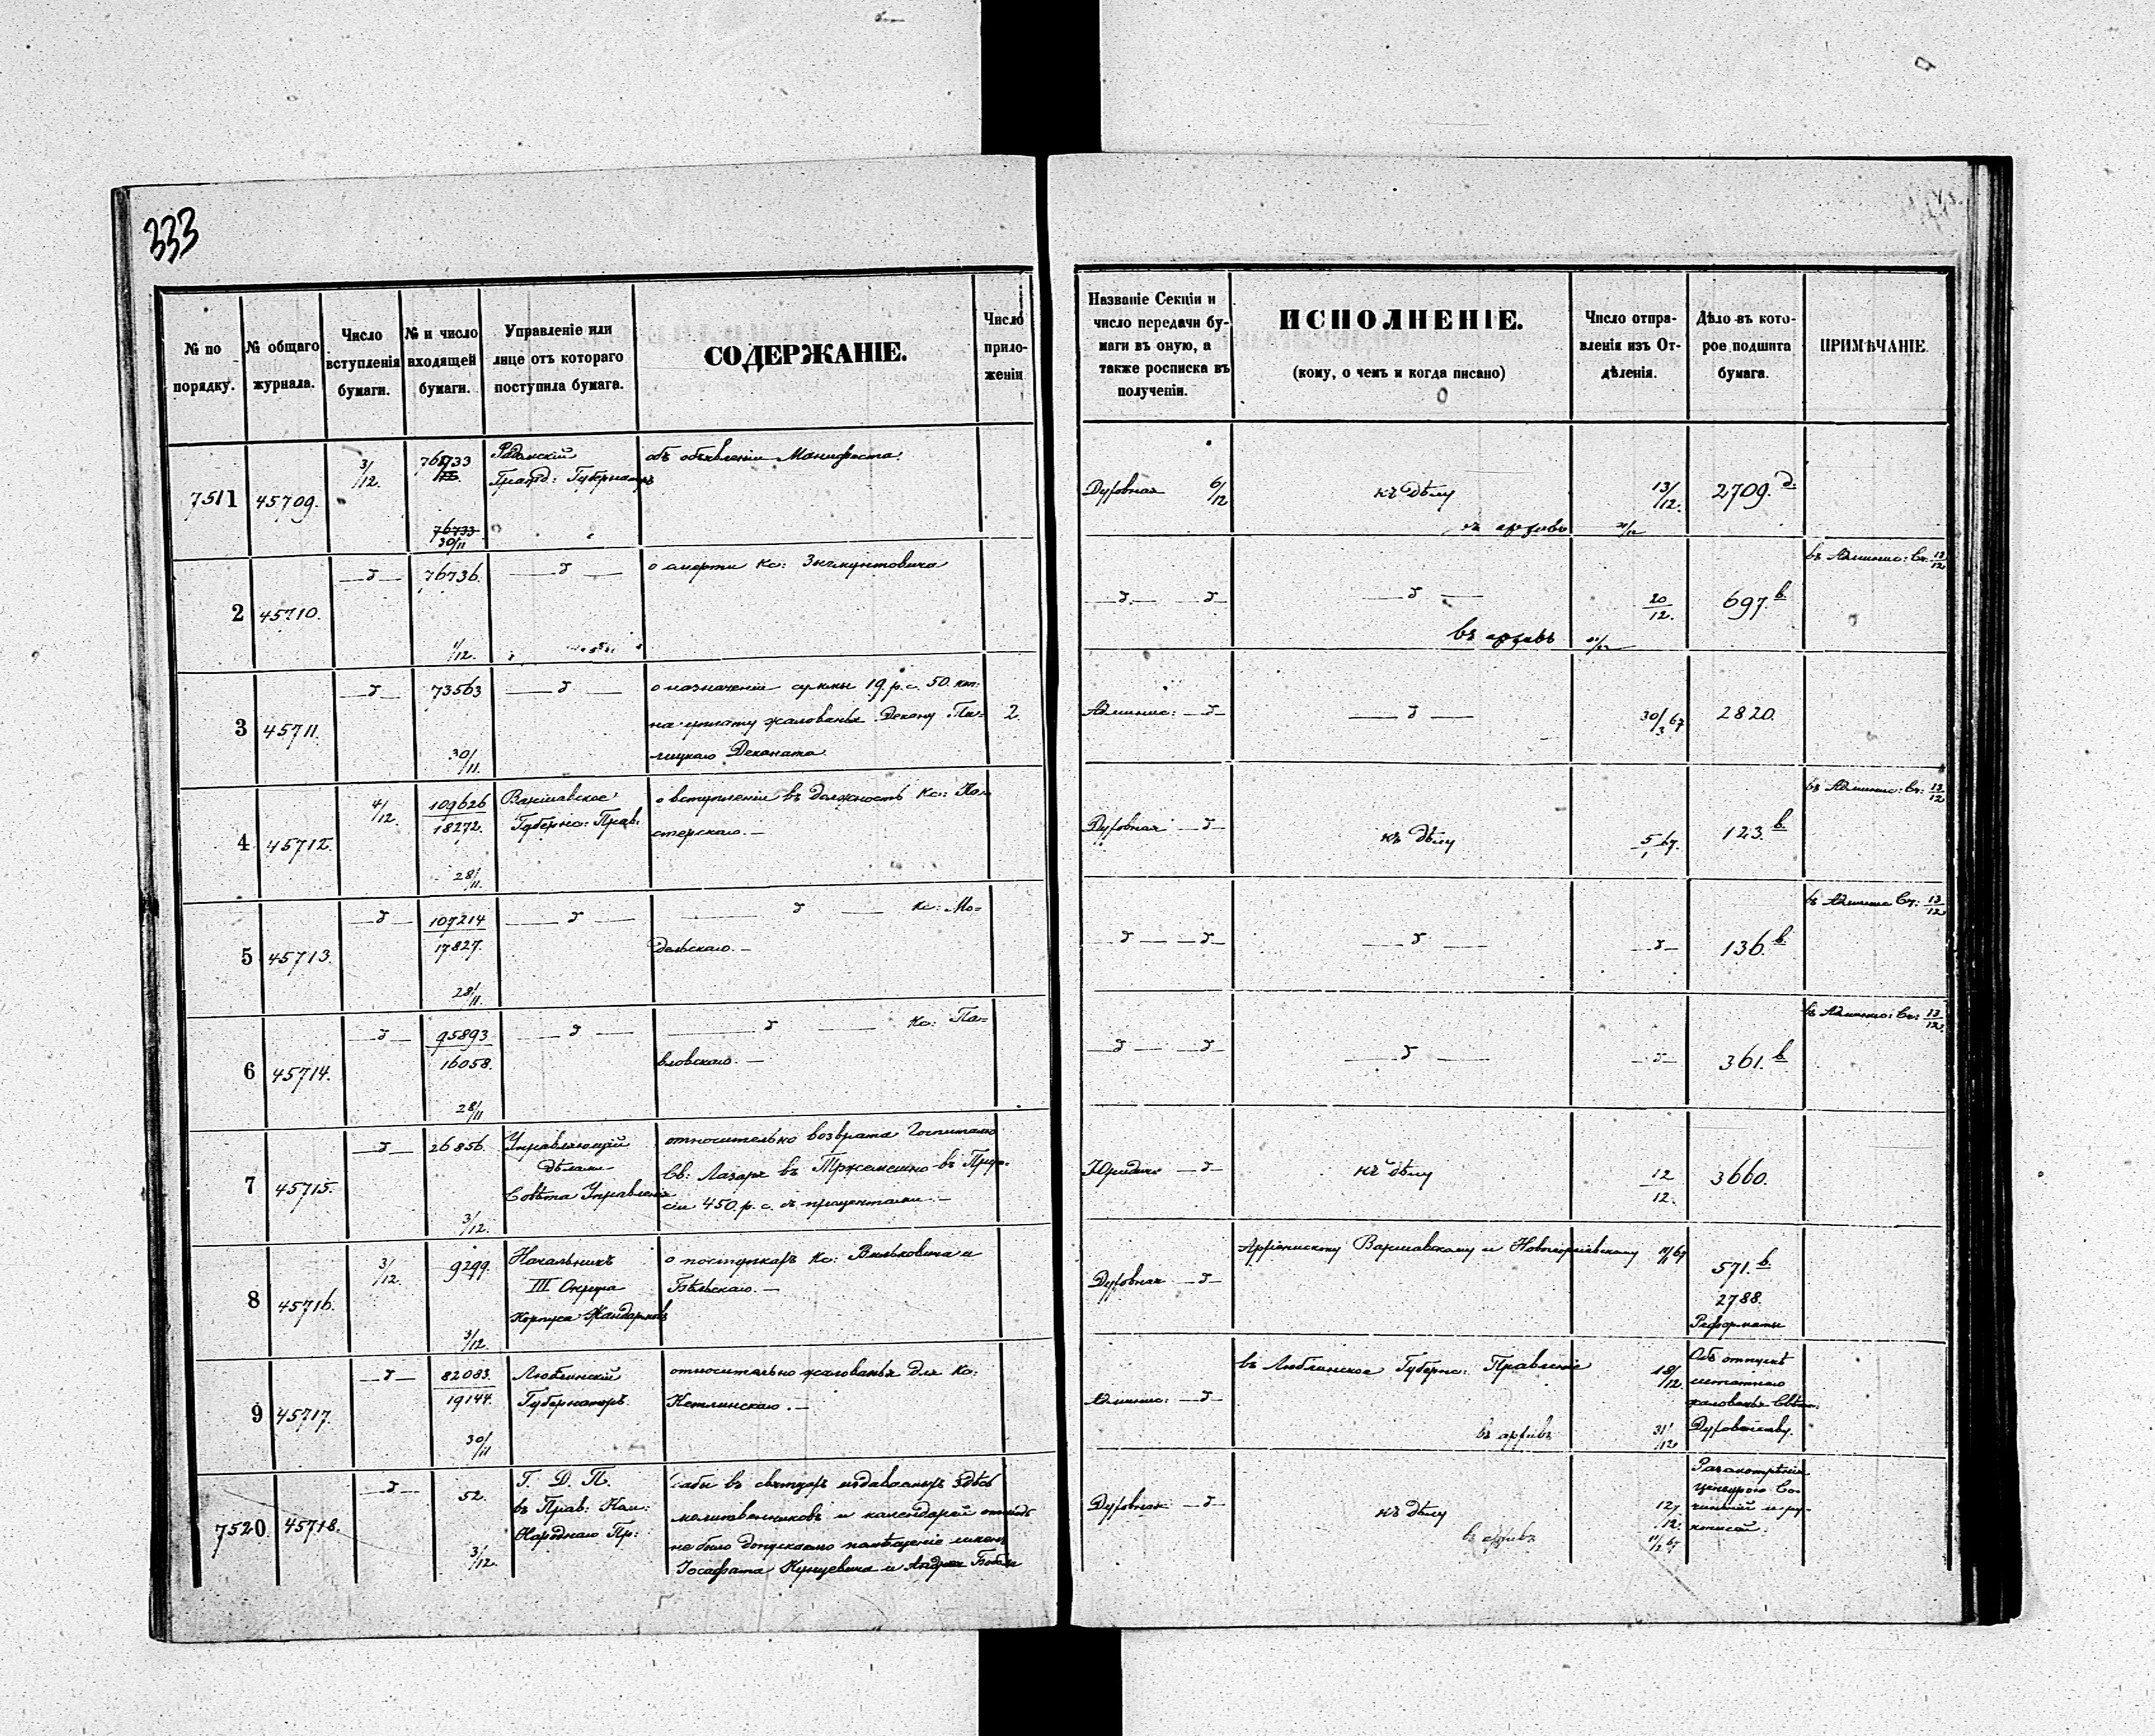 333
№ по
порядку.
№ общаго
журнала.
Число
вступленія
бумаги.
№ и число
входящей
бумаги.
Управленіе или
лице отъ котораго
поступила бумага.
СОДЕРЖАНІЕ.
Число
прило-
женій
Названіе Секціи и
число передачи бу-
маги въ оную, а
также росписка въ
полученіи.
ИСПОЛНЕНІЕ.
(кому, о чемъ и когда писано)
Число отпра-
вленія изъ От-
дѣленія.
Дѣло въ кото-
рое подшита
бумага.
ПРИМѢЧАНІЕ.
7511
45709.
3/12.
76733
30/11
Радомскій
Гражд: Губернаторъ
объ объявленіи Манифеста.
Духовная 6/12
къ дѣлу
въ архивъ
13/12.
2709. д.
2
45710.
76736.
1/12.
о смерти Кс: Зыгмунтовича
въ архивъ
20/12.
697. в.
въ Админис: Ст. 13/12
3
45711.
73563
30/11.
о назначеніи суммы 19. р. с. 50. коп:
на уплату жалованья Декану
Деканата
2.
Админис:
30/3 67
2820.
4
45712.
4/12.
109626
18272.
28/11.
Варшавское
Губернс: Прав:
о вступленіи въ должность Кс:
стерскаго. —
Духовная
къ дѣлу
5/1 67.
123. в.
въ Админис: Ст: 13/12
5
45713.
107214
17827.
28/11.
Кс: Мо=
дельскаго. —
136. в.
въ Админис Ст: 13/12
6
45714.
95893
16058.
28/11
Кс: Па=
вловскаго. —
361. в
въ Админис: Ст: 13/12.
7
45715.
26856.
3/12.
Управляющій
дѣлами
Совѣта Управленія
относительно возврата Госпиталю
Св: Лазаря въ Тржемешно въ Прус=
сіи 450. р. с. съ процентами. —
Юридич:
къ дѣлу
12/12.
3660.
8
45716.
3/12.
9299.
3/12.
Начальникъ
III Округа
Корпуса Жандармовъ
о поступкахъ Кс: Вильковича и
Бѣльскаго. —
Духовная
Варшавскому и Новогеоргіевскому
571. в.
2788.
Реформаты
9
45717.
82083.
19144.
30/11
Люблинскій
Губернаторъ.
относительно жалованья для Кс:
Кетлинскаго. —
Админис:
въ Люблинское Губернс: Правленіе
въ архивъ
18/12.
31/12
Объ отпускѣ
штатнаго
жалованья Свѣтс:
Духовенству.
7520.
45718.
52.
3/12.
Г. Д. П.
въ Прав: Ком:
Народнаго Пр:
дабы въ издаваемыхъ здѣсь
молитвенниковъ и календарей отнюдь
не было допускаемо помѣщеніе
Іосафата Кунцевича и Андрея Боболи
Духовная
къ дѣлу
въ архивъ
12/12.
Разсмотрѣніе
цензурою Со-
чиненій и ру-
кописей.